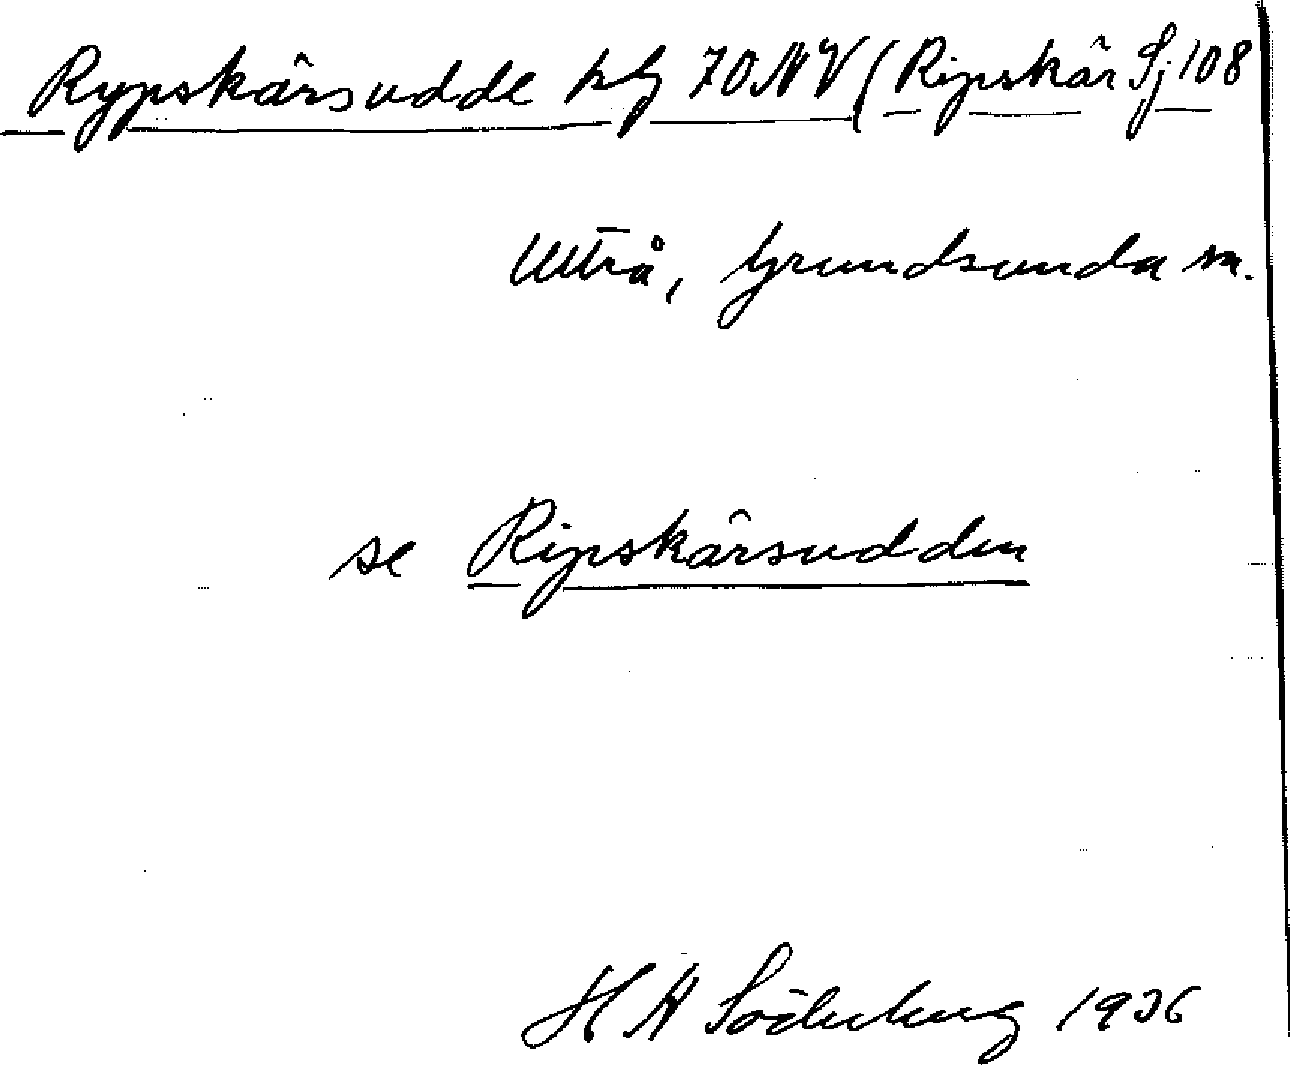 Rypskärsudde plg 70 NV (Ripskär Sj 108
Utterå, Grundsunda sn.
se Ripskärsudden
H A Söderberg 1936